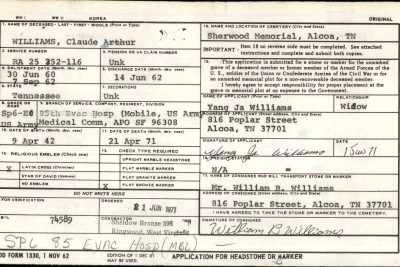 W W II
KOREA
ORIGINAL
NAME OF DECEASED - LAST - FIRST - MIDDLE (Print or Type)
WILLIAMS, Claude Arthur
14. NAME AND LOCATION OF CEMETERY (City and State)
Sherwood Memorial, Alcoa, TN
IMPORTANT: Item 18 on reverse side must be completed. See attached
instructions and complete and submit both copies.
2. SERVICE NUMBER
RA 25 352-116
5. PENSION OR VA CLAIM NUMBER
Unk
This application is submitted for a stone or marker for the unmarked
grave of a deceased member or former member of the Armed Forces of the
U. S., soldier of the Union or Confederate Armies of the Civil War or for
an unmarked memorial plot for a non-recoverable deceased member.
I hereby agree to accept responsibility for proper placement at the grave
or memorial plot at no expense to the Government.
ENLISTMENT DATE
30 Jun 60
7 Sep 62
DISCHARGE DATE
14 Jun 62
STATE
Tennessee
DECORATIONS
Unk
NAME OF APPLICANT
RELATIONSHIP
Yang Ja Williams
Widow
816 Poplar Street
Alcoa, TN 37701
BRANCH OF SERVICE, COMPANY, REGIMENT, DIVISION
Sp6-E6
US Army
85th Evac Hosp (Mobile, US Army
Medical Comm, APO SF 96308
DATE OF BIRTH
9 Apr 42
11. DATE OF DEATH
21 Apr 71
SIGNATURE OF APPLICANT
Yang Ja Williams
1 Jun 71
N/A
12. RELIGIOUS EMBLEM
CHECK TYPE REQUIRED
UPRIGHT MARBLE HEADSTONE
X LATIN CROSS (Christian)
FLAT MARBLE MARKER
STAR OF DAVID (Hebrew)
FLAT GRANITE MARKER
NO EMBLEM
X FLAT BRONZE MARKER
Mr. William B. Williams
816 Poplar Street, Alcoa, TN 37701
I HAVE AGREED TO TAKE THE STONE OR MARKER TO THE CEMETERY.
DO NOT WRITE HERE
ORDERED
21 JUN 1971
74589
B/L
Sheidow Bronze
Kingwood, West Virginia
SIGNATURE OF CONSIGNEE
William B Williams
SP6 85 EVAC HOSP (MBL)
FORM 1330, 1 NOV 62
EDITION OF 1 DEC 61
MAY BE USED
APPLICATION FOR HEADSTONE OR MARKER